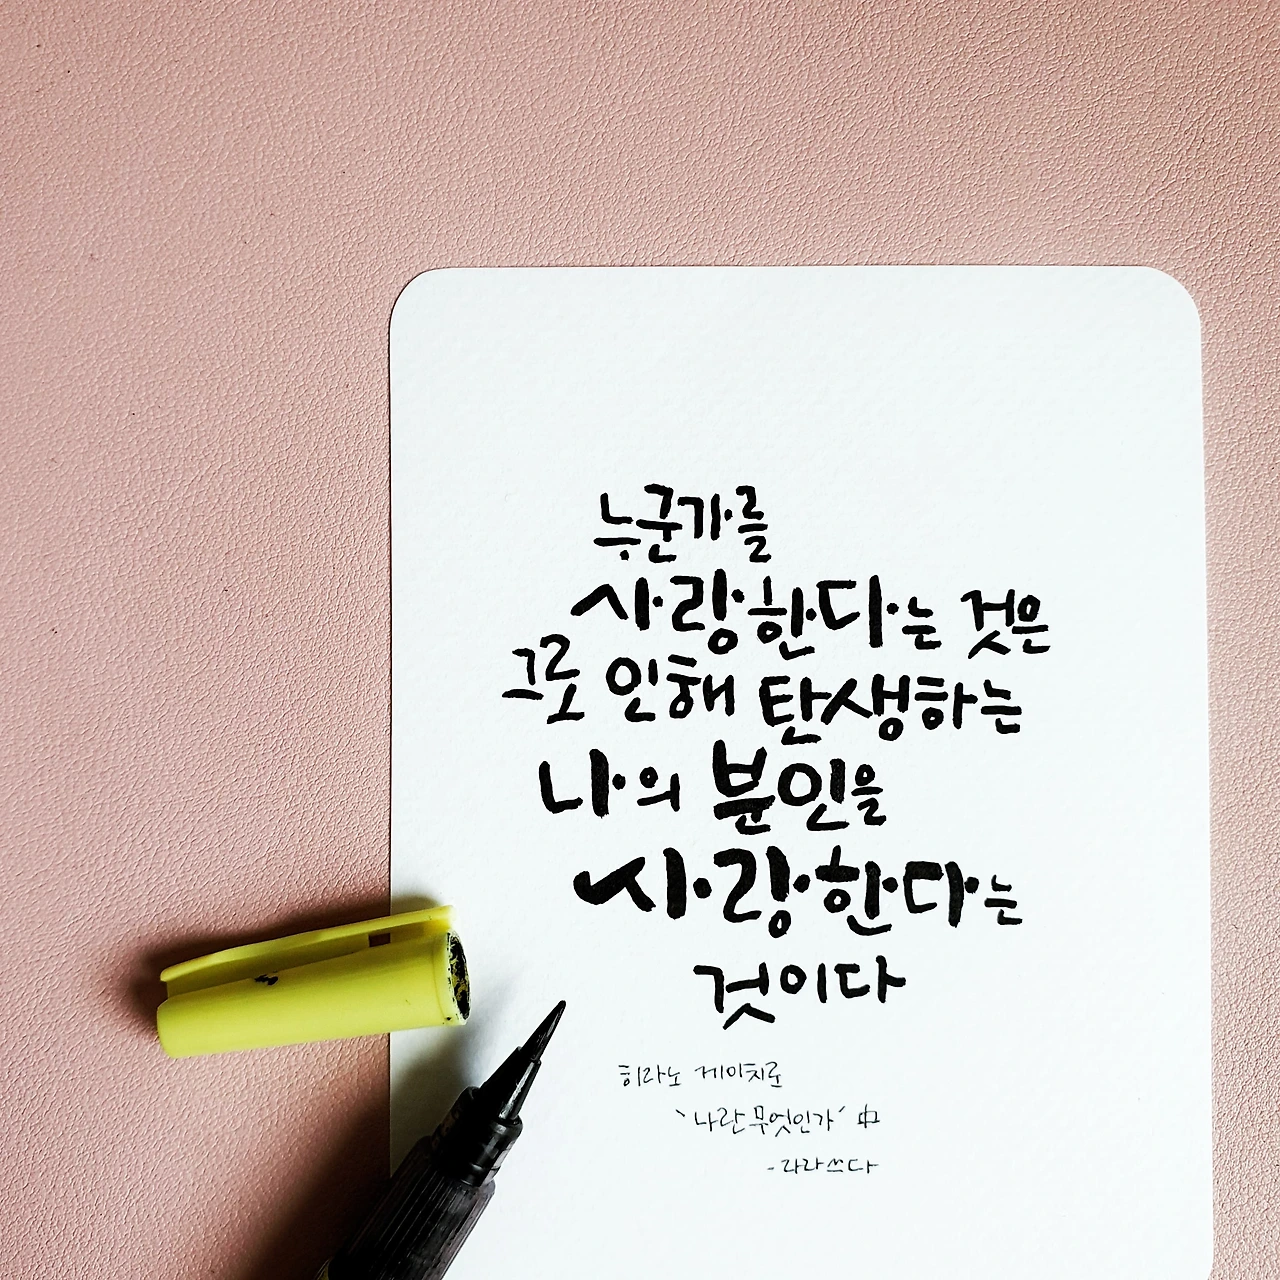 누군가를
사랑한다는 것은
그로 인해 탄생하는
나의 분인을
사랑한다는
것이다
히라노 게이치로
'나란 무엇인가' 中
-라라쓰다